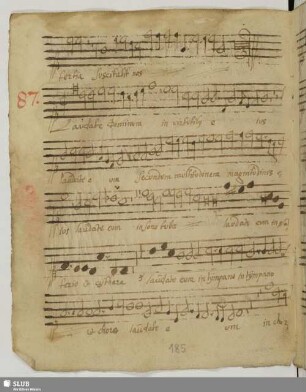 tertia suscitabit nos
87.
Laudate Dominum in virtutibus e ius
laudate e um secundum multitudinem magnitudinis e
ius laudate eum in sono tubæ laudate eum in psal
terio et cythara laudate eum in tympano in tympano
et choro laudate e um in cho
185
SLUB